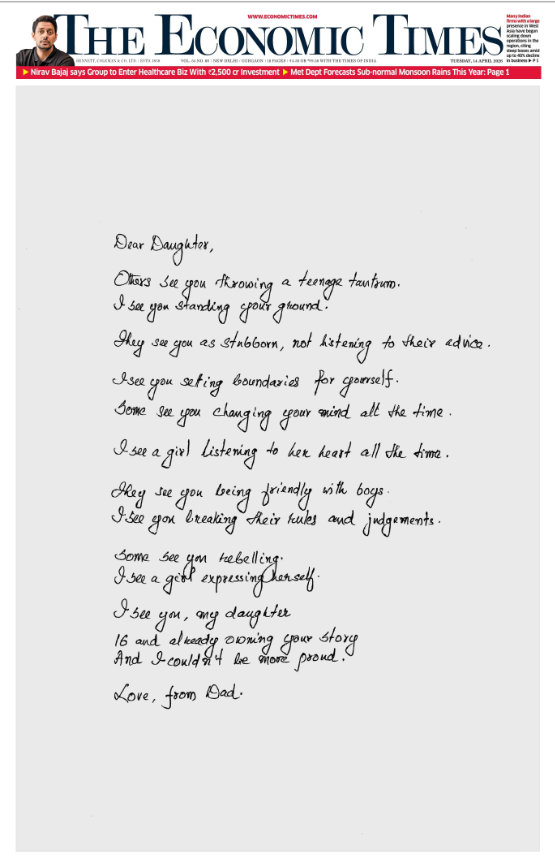 WWW.ECONOMICTIMES.COM
THE ECONOMIC TIMES
Many Indian firms with a large presence in West Asia have begun scaling down operations in the region, citing steep losses amid up to 40% decline in business ▶ P 5
BENNETT, COLEMAN & CO. LTD.
NEW DELHI / GURGAON
WITH THE TIMES OF INDIA
TUESDAY, 14 APRIL 2026
▶ Nirav Bajaj says Group to Enter Healthcare Biz With ₹2,500 cr Investment ▶ Met Dept Forecasts Sub-normal Monsoon Rains This Year: Page 1
Dear Daughter,
Others see you throwing a teenage tantrum.
I see you standing your ground.
They see you as stubborn, not listening to their advice.
I see you setting boundaries for yourself.
Some see you changing your mind all the time.
I see a girl listening to her heart all the time.
They see you being friendly with boys.
I see you breaking their rules and judgements.
Some see you rebelling.
I see a girl expressing herself.
I see you, my daughter
16 and already owning your story
And I couldn't be more proud.
Love, from Dad.